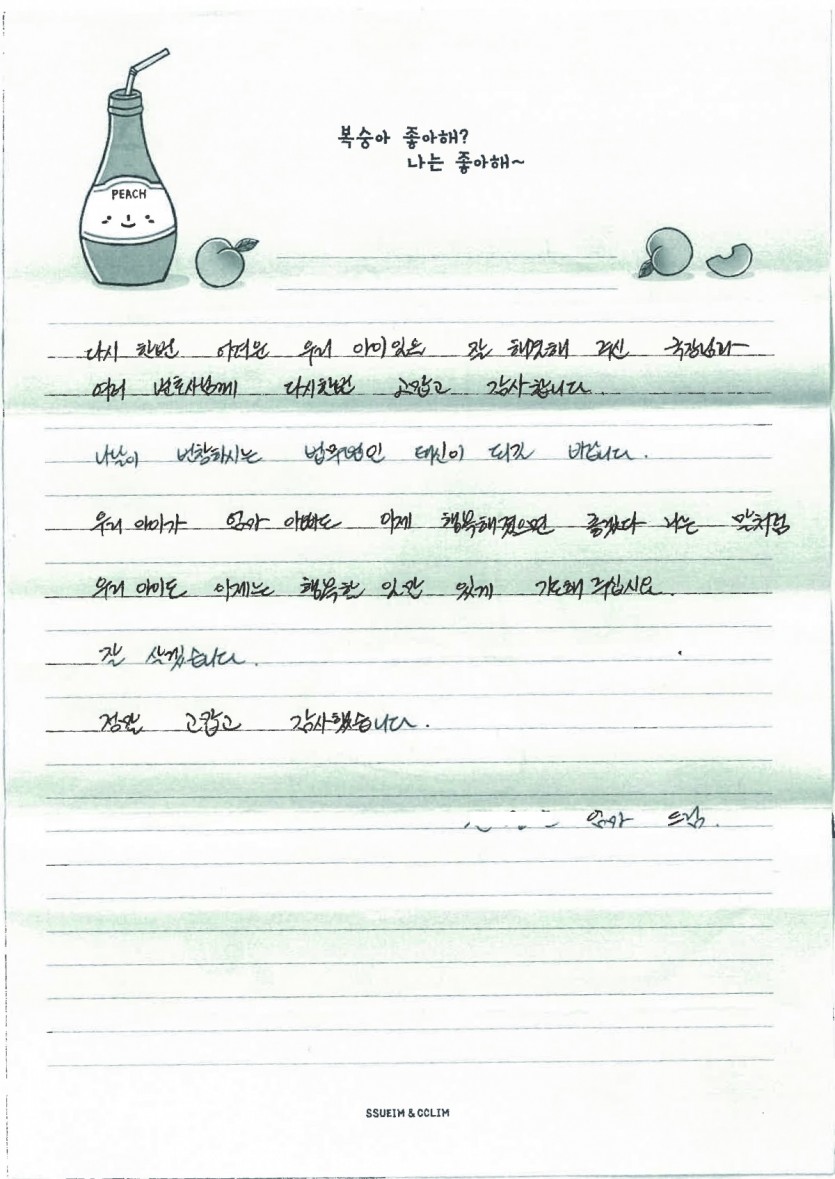 복숭아 좋아해?
나는 좋아해~
PEACH
다시 한번 어려운 우리 아이일을 잘 해결해 주신 국장님과
여러 변호사님께 다시한번 고맙고 감사합니다.
나날이 번창하시는 법무법인 태신이 되길 바랍니다.
우리 아이가 엄마 아빠도 이제 행복해졌으면 좋겠다 나는 말처럼
우리 아이도 이제는 행복한 일만 있게 기도해 주십시요.
잘 살겠습니다.
정말 고맙고 감사했습니다.
엄마 드림.
SSUEIM & CCLIM